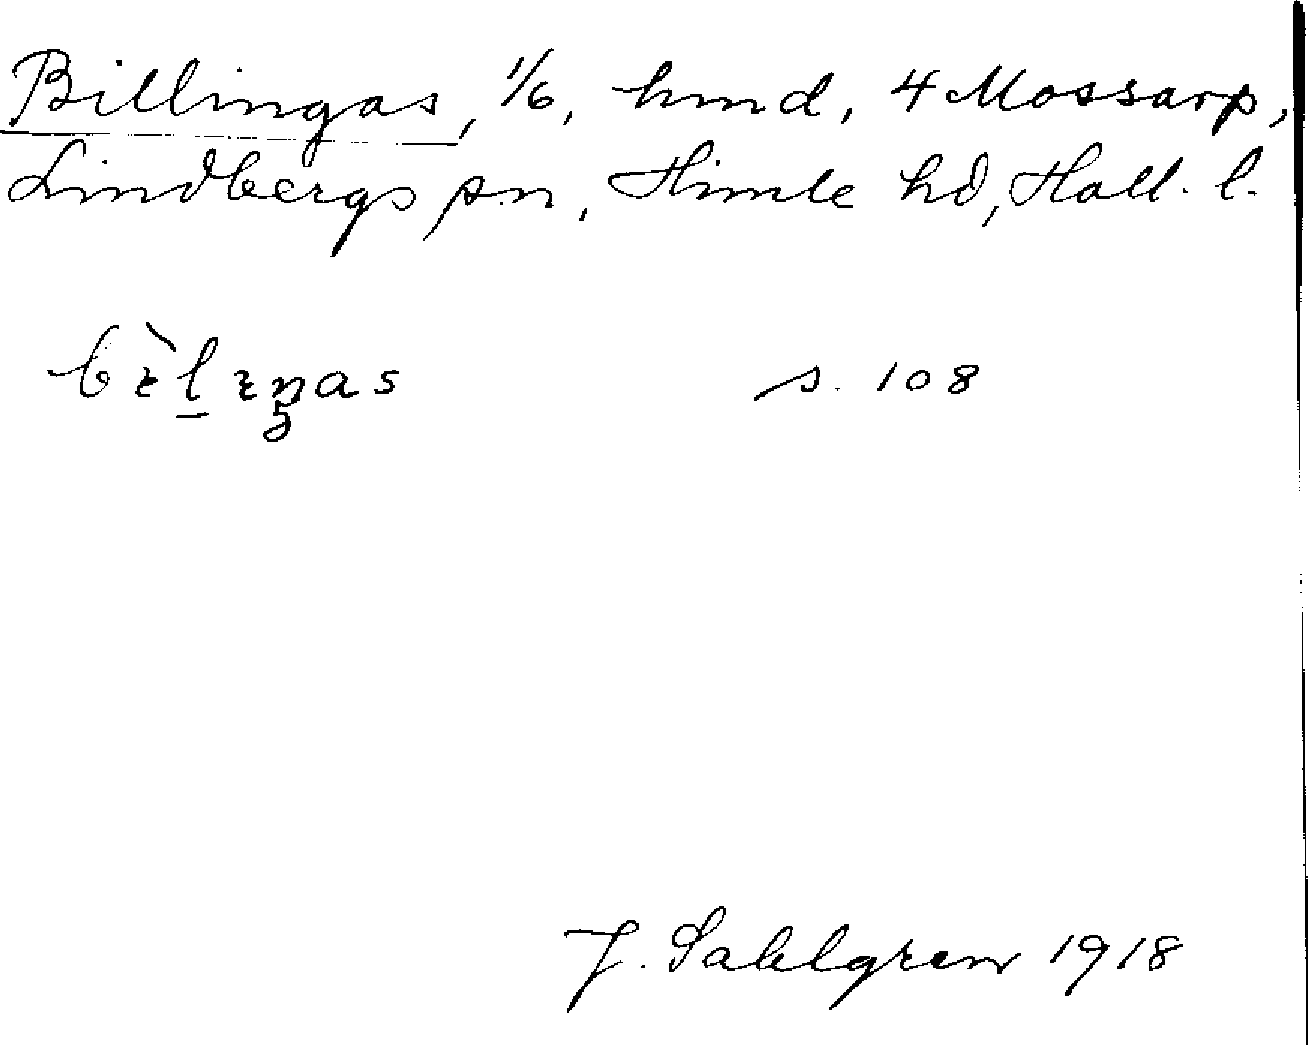 Billingas, 1/6, hmd, 4 Mossarp,
Lindbergs sn, Himle hd, Hall. l.
s. 108
J. Sahlgren 1918